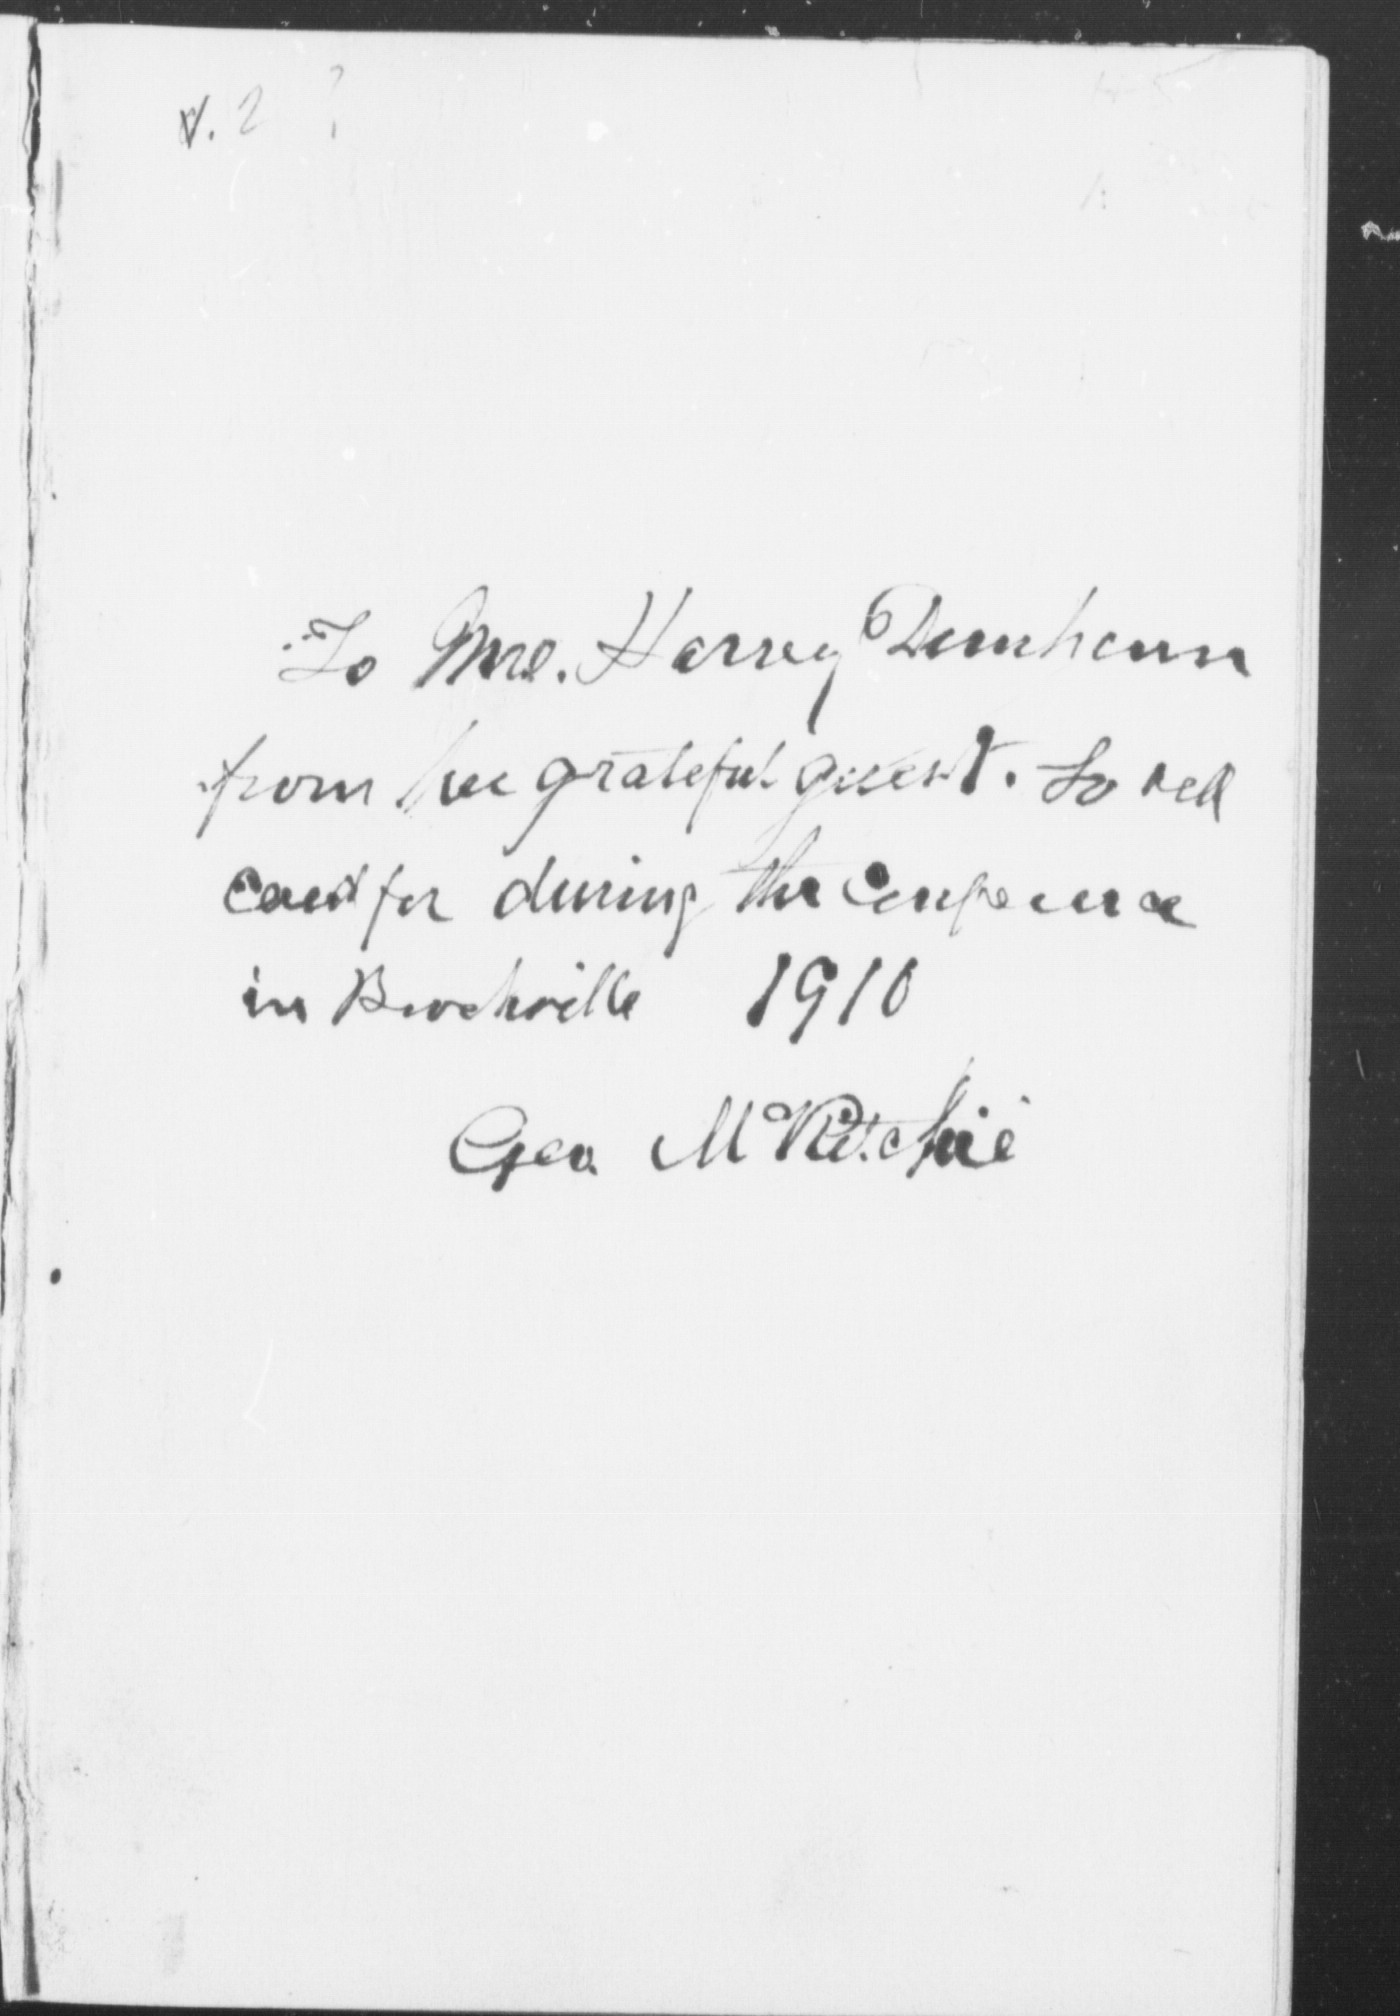 v. 2 ?
To Mrs. Harvey Dunham
from her grateful guest. So well
cared for during the Conference
in Brockville 1910
Geo. McRitchie